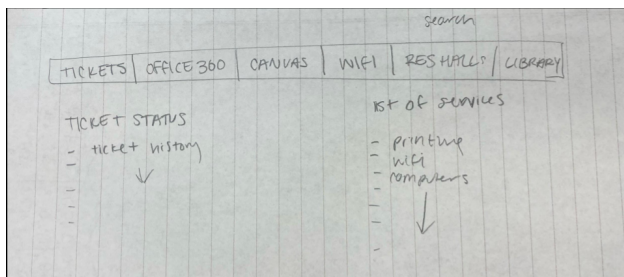 search
TICKETS OFFICE 360 CANVAS WIFI RES HALLS LIBRARY
TICKET STATUS
- ticket history
list of services
- printing
- wifi
- computers